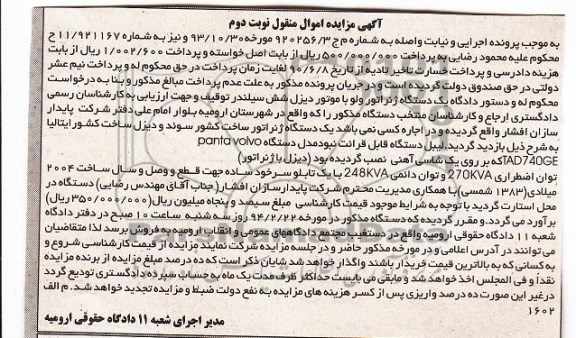 آگهی مزایده اموال منقول نوبت دوم
به موجب پرونده اجرایی و نیابت واصله به شماره م ج ۹۲۰۲۵۶/۳ مورخه ۹۳/۱۰/۳۰ و نیز به شماره ۱۱/۹۲۱۱۶۷ ح
محکوم علیه محمود رضایی به پرداخت ۵۰۰/۰۰۰/۰۰۰ ریال از بابت اصل خواسته و پرداخت ۱/۰۰۲/۶۰۰ ریال از بابت
هزینه دادرسی و پرداخت خسارت تاخیر تادیه از تاریخ ۹۰/۶/۸ لغایت زمان پرداخت در حق محکوم له و پرداخت نیم عشر
دولتی در حق صندوق دولت گردیده است و در جریان پرونده مذکور به علت عدم پرداخت مبالغ مذکور و بنا به درخواست
محکوم له و دستور دادگاه یک دستگاه ژنراتور ولو با موتور دیزل شش سیلندر توقیف و جهت ارزیابی به کارشناسان رسمی
دادگستری ارجاع و کارشناسان منتخب دستگاه مذکور را که واقع در شهرستان ارومیه بلوار امام علی دفتر شرکت پایدار
سازان افشار واقع گردیده و در اجاره کسی نمی باشد یک دستگاه ژنراتور ساخت کشور سوئد و دیزل ساخت کشور ایتالیا
به شرح ذیل بازدید گردید لیبل دستگاه قابل قرائت نبود مدل دستگاه panfo volvo
TAD740GE که بر روی یک شاسی آهنی نصب گردیده بود (دیزل با ژنراتور)
توان اضطراری 270KVA و توان دائمی 248KVA با یک تابلو سرخود ساده جهت قطع و وصل و سال ساخت ۲۰۰۴
میلادی (۱۳۸۳ شمسی) با همکاری مدیریت محترم شرکت پایدارسازان افشار (جناب آقای مهندس رضایی) دستگاه در
محل استارت گردید با توجه به شرایط موجود قیمت کارشناسی مبلغ سیصد و پنجاه میلیون ریال (۳۵۰/۰۰۰/۰۰۰ ریال)
برآورد می گردد. و مقرر گردیده که دستگاه مذکور در مورخه ۹۴/۲/۲۲ روز سه شنبه ساعت ۱۰ صبح در دفتر دادگاه
شعبه ۱۱ دادگاه حقوقی ارومیه واقع در دستغیب مجتمع دادگاههای عمومی و انقلاب ارومیه به فروش برسد لذا متقاضیان
می توانند در آدرس اعلامی و در مورخه مذکور حاضر و در جلسه مزایده شرکت نمایند مزایده از قیمت کارشناسی شروع و
به کسانی که به بالاترین قیمت خریدار باشند واگذار خواهد شد شایان ذکر است که ده درصد مبلغ مزایده از برنده مزایده
نقداً و فی المجلس اخذ خواهد شد و مابقی می بایست حداکثر ظرف مدت یک ماه به حساب سپرده دادگستری تودیع گردد
در غیر این صورت ده درصد واریزی پس از کسر هزینه های مزایده به نفع دولت ضبط و مزایده تجدید خواهد شد. م الف
۱۶۰۲
مدیر اجرای شعبه ۱۱ دادگاه حقوقی ارومیه